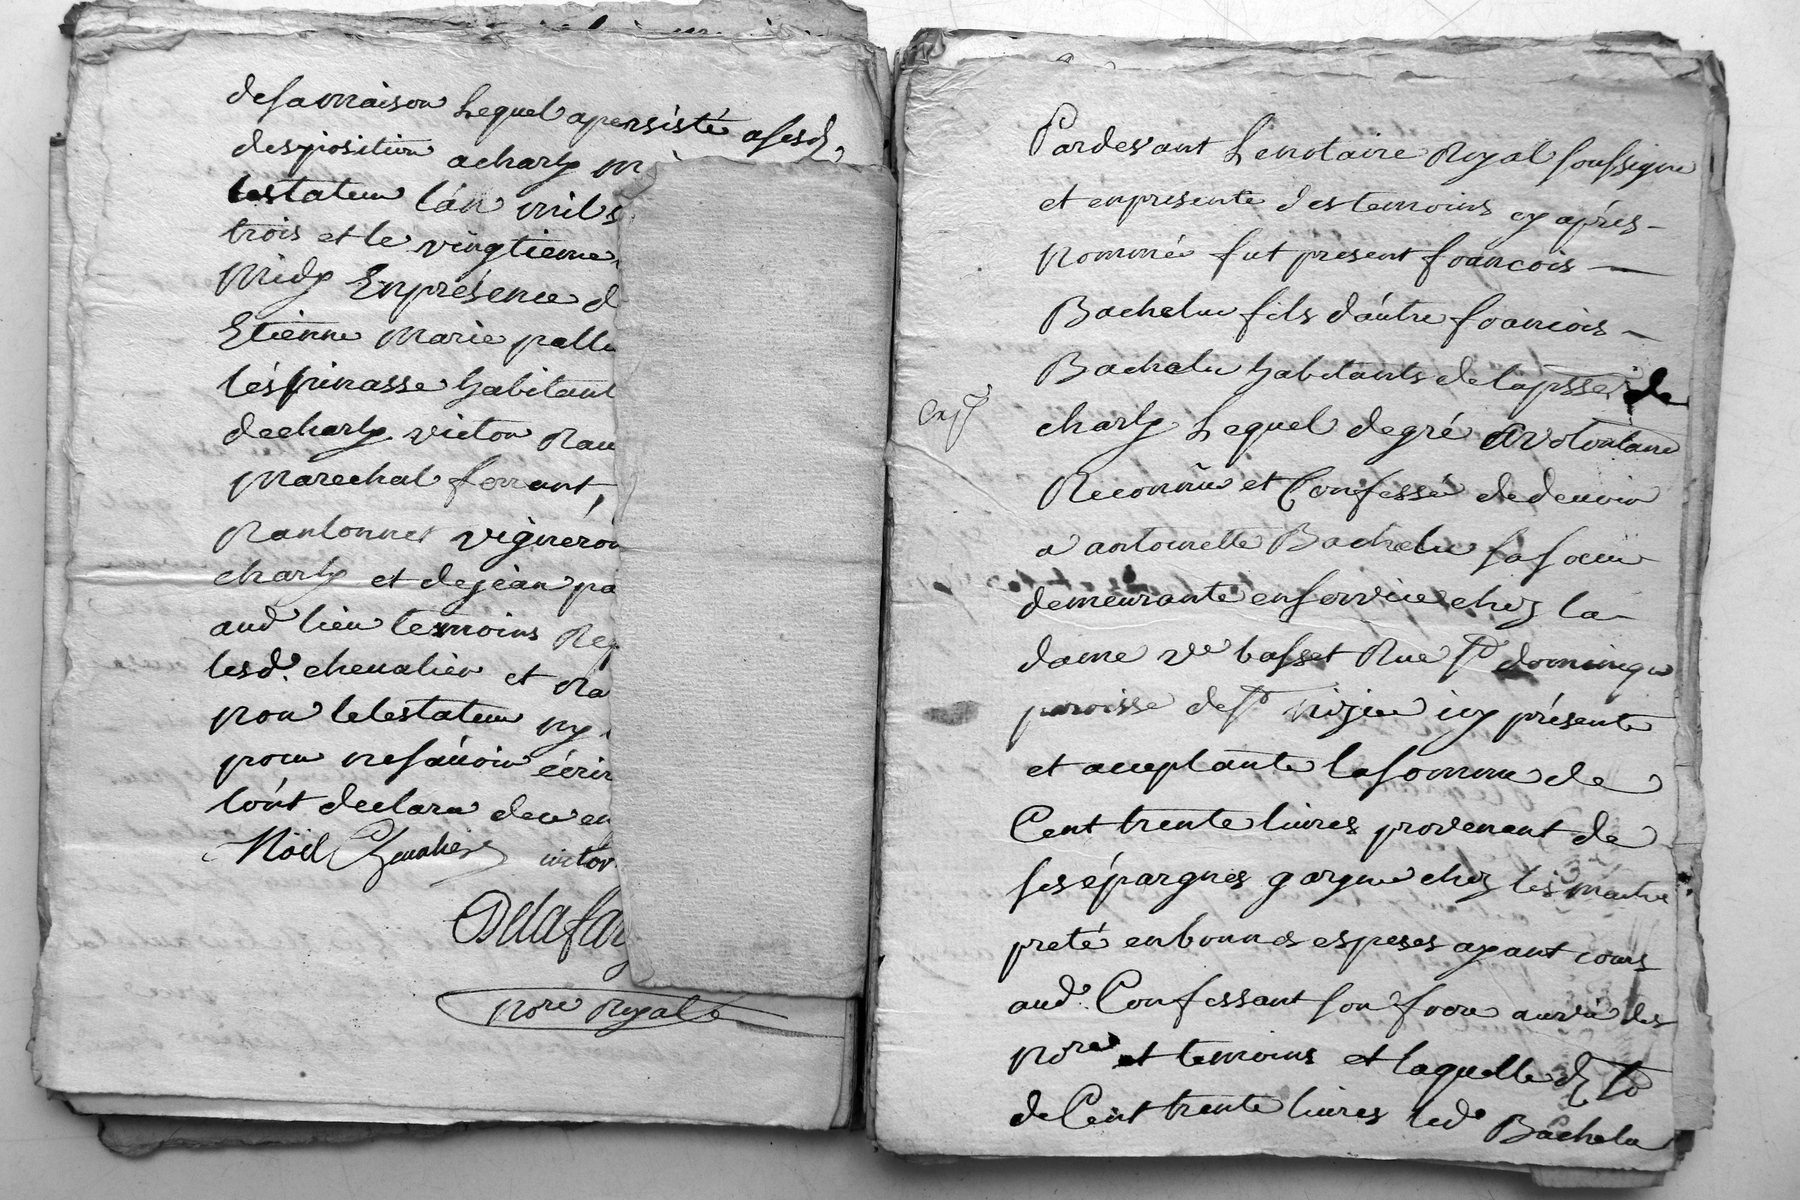 desamaison Lequel apersisté asesd.
desposition acharly
testateur l'an mil s
trois et le vingtieme
Midy Enprésence d
Etienne Marie pallu
léspinasse habitant
decharly victor Rau
Marechal ferrant,
Rantonnet vignéron
charly et dejean pa
aud lieu temoins Req
lesd. chevalier et Ra
non letestateur ny
pour nesçavoir écrir
lont declaré dece en
Nöel Chevalier victor
Delafay
Nore Royal
Pardevant Lenotaire Royal soussigne
et enpresente destemoins cy aprés
Nommé fut present francois
Bachelu fils dáutre francois
Bachelu habitants delapsse de
charly Lequel degré et volontaire
Reconnu et Confessé dedevoir
a antoinette Bachelu sasoeur
demeurante enservice chez la
dame ve basset Rue st domingue
paroisse dest nizier icy présente
et acceptante lasomme de
Cent trente livres provenant de
ses épargnes gagne chez les maitre
preté enbonnes espeses ayant cours
aud. Confessant son frere auvû des
Nore et temoins et laquelle
de Cent trente livres led. Bachelu